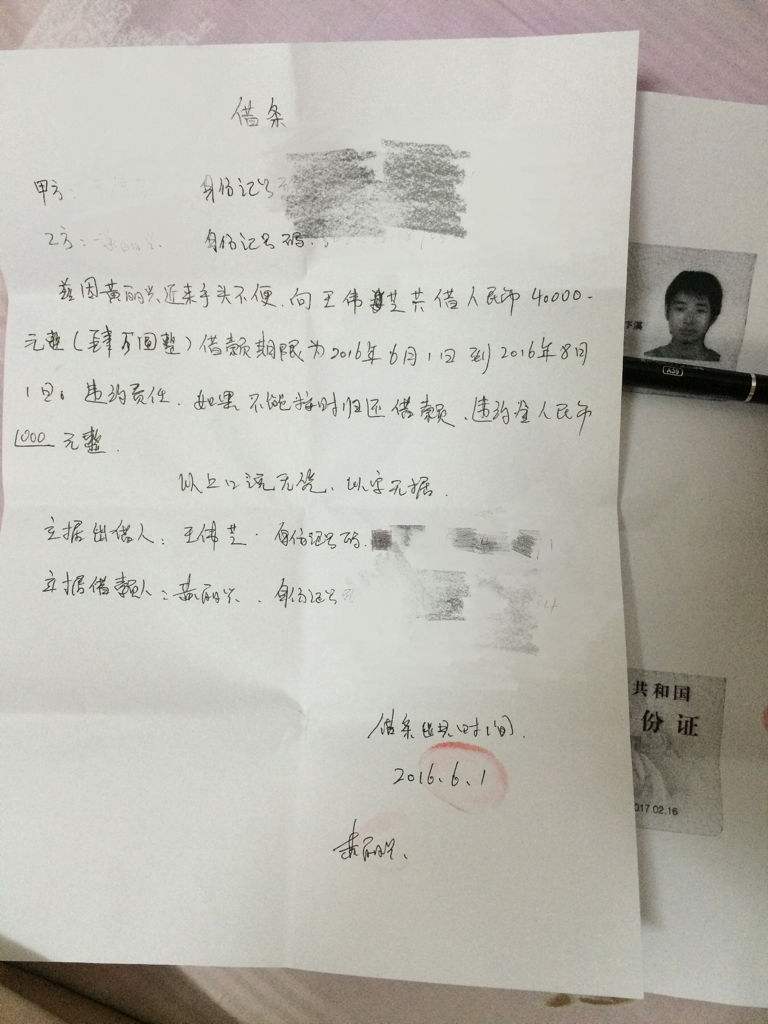 借条
甲方
身份证号
乙方：
身份证号码
兹因黄丽兴近来手头不便，向王伟芝共借人民币40000
元整（肆万圆整）借款期限为2016年6月1日到2016年8月
1日。违约责任，如果不能按时归还借款，违约金人民币
1000元整.
以上口说无凭，以字无据.
立据出借人：王伟芝. 身份证号码
立据借款人：黄丽兴、身份证号
借条出具时间.
2016.6.1
黄丽兴
下溪
A39
共和国
份证
017.02.16